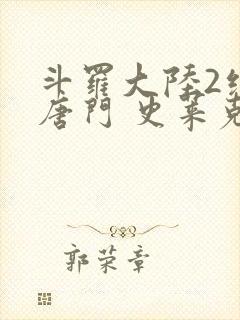 斗羅大陸2絕
唐門 史萊克
郭荣章